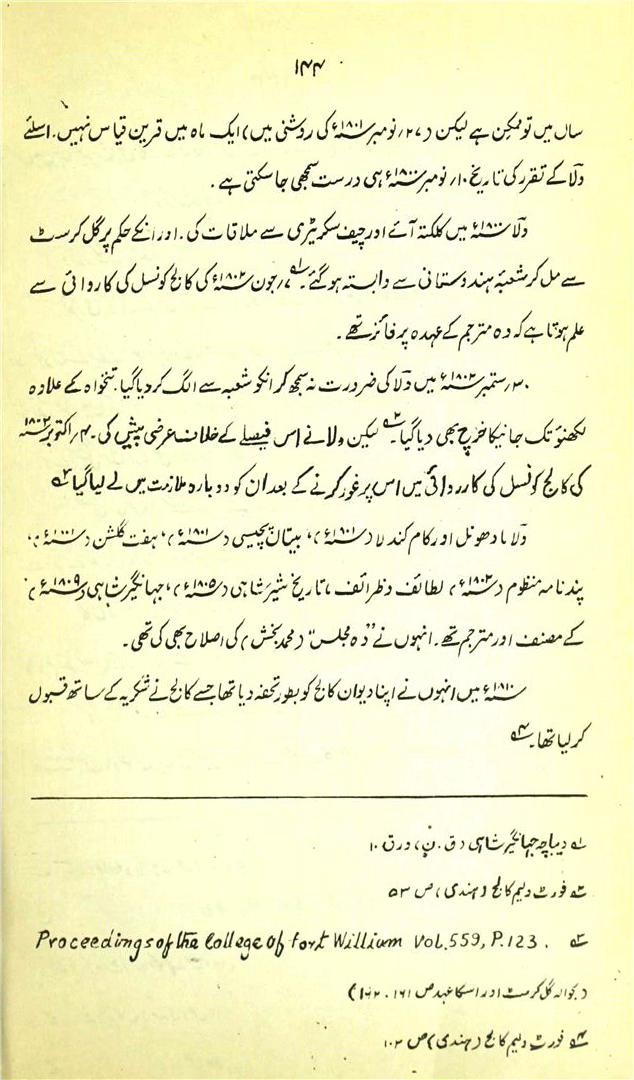 ۱۴۴
ساں میں تو ممکن ہے لیکن (۲۷؍نومبر ۱۸۰۱ء کی روشنی میں) ایک ماہ میں قرین قیاس نہیں۔ اسلئے
ولا کے تقرر کی تاریخ ۱۰؍نومبر ۱۸۰۰ء ہی درست سمجھی جاسکتی ہے۔
ولا ۱۸۰۰ء میں کلکتہ آئے اور چیف سکریٹری سے ملاقات کی۔ اور انکے حکم پر گل کرسٹ
سے مل کر شعبۂ ہندوستانی سے وابستہ ہوگئے۔ لہ ۷؍جون ۱۸۰۲ء کی کالج کونسل کی کاروائی سے
علم ہوتا ہے کہ وہ مترجم کے عہدہ پر فائز تھے۔
۳۰؍ستمبر ۱۸۰۲ء میں ولا کی ضرورت نہ سمجھ کر انکو شعبہ سے الگ کردیا گیا۔ تنخواہ کے علاوہ
لکھنؤ تک جانیکا خرچ بھی دیا گیا۔ ۲ہ لیکن ولا نے اس فیصلے کے خلاف عرضی پیش کی۔ ۴؍اکتوبر ۱۸۰۲ء
کی کالج کونسل کی کارروائی میں اس پر غور کرنے کے بعد ان کو دوبارہ ملازمت میں لے لیا گیا ۳ہ
ولا مادھونل اور کام کندلا (۱۸۰۱ء)، بیتال پچیسی (۱۸۰۱ء)، ہفت گلشن (۱۸۰۱ء)،
پندنامہ منظوم (۱۸۰۲ء) لطائف و ظرائف، تاریخ شیر شاہی (۱۸۰۵ء)، جہانگیر شاہی (۱۸۰۹ء)
کے مصنف اور مترجم تھے۔ انہوں نے "دہ مجلس" (محمد بخش) کی اصلاح بھی کی تھی۔
۱۸۱۰ء میں انہوں نے اپنا دیوان کالج کو بطور تحفہ دیا تھا جسے کالج نے شکریہ کے ساتھ قبول
کرلیا تھا۔ ۴ہ
لہ دیباچہ جہانگیر شاہی (ق۔ن)، ورق ۱۰
۲ہ فورٹ ولیم کالج (ہندی)، ص ۵۳
۳ہ Proceedings of the College of Fort William Vol. 559, P. 123.
(بحوالہ گل کرسٹ اور اسکا عہد ص ۱۶۱، ۱۶۲)
۴ہ فورٹ ولیم کالج (ہندی) ص ۱۰۲